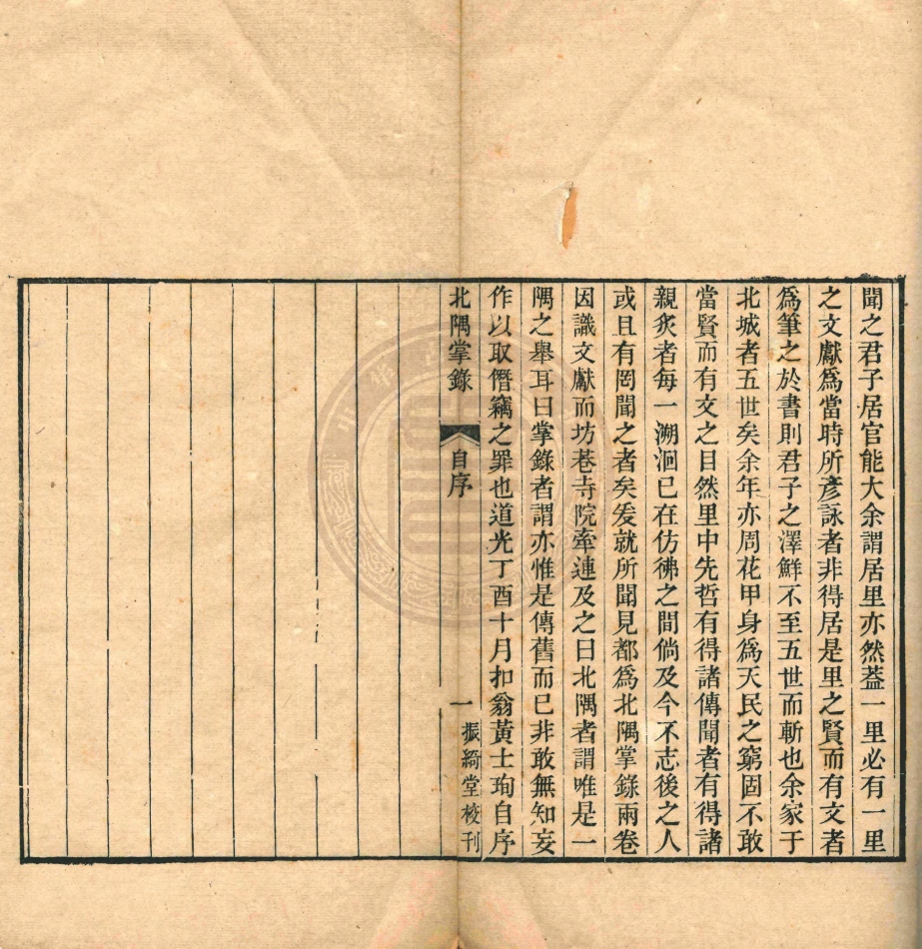 聞之君子居官能大余謂居里亦然葢一里必有一里
之文獻爲當時所彥詠者非得居是里之賢而有文者
爲筆之於書則君子之澤鮮不至五世而斬也余家于
北城者五世矣余年亦周花甲身爲天民之窮固不敢
當賢而有文之目然里中先哲有得諸傳聞者有得諸
親炙者每一溯洄已在仿彿之間倘及今不志後之人
或且有罔聞之者矣爰就所聞見都爲北隅掌錄兩卷
因識文獻而坊巷寺院牽連及之曰北隅者謂唯是一
隅之舉耳曰掌錄者謂亦惟是傳舊而已非敢無知妄
作以取僭竊之罪也道光丁酉十月扣翁黃士珣自序
北隅掌錄 自序 一 振綺堂校刊